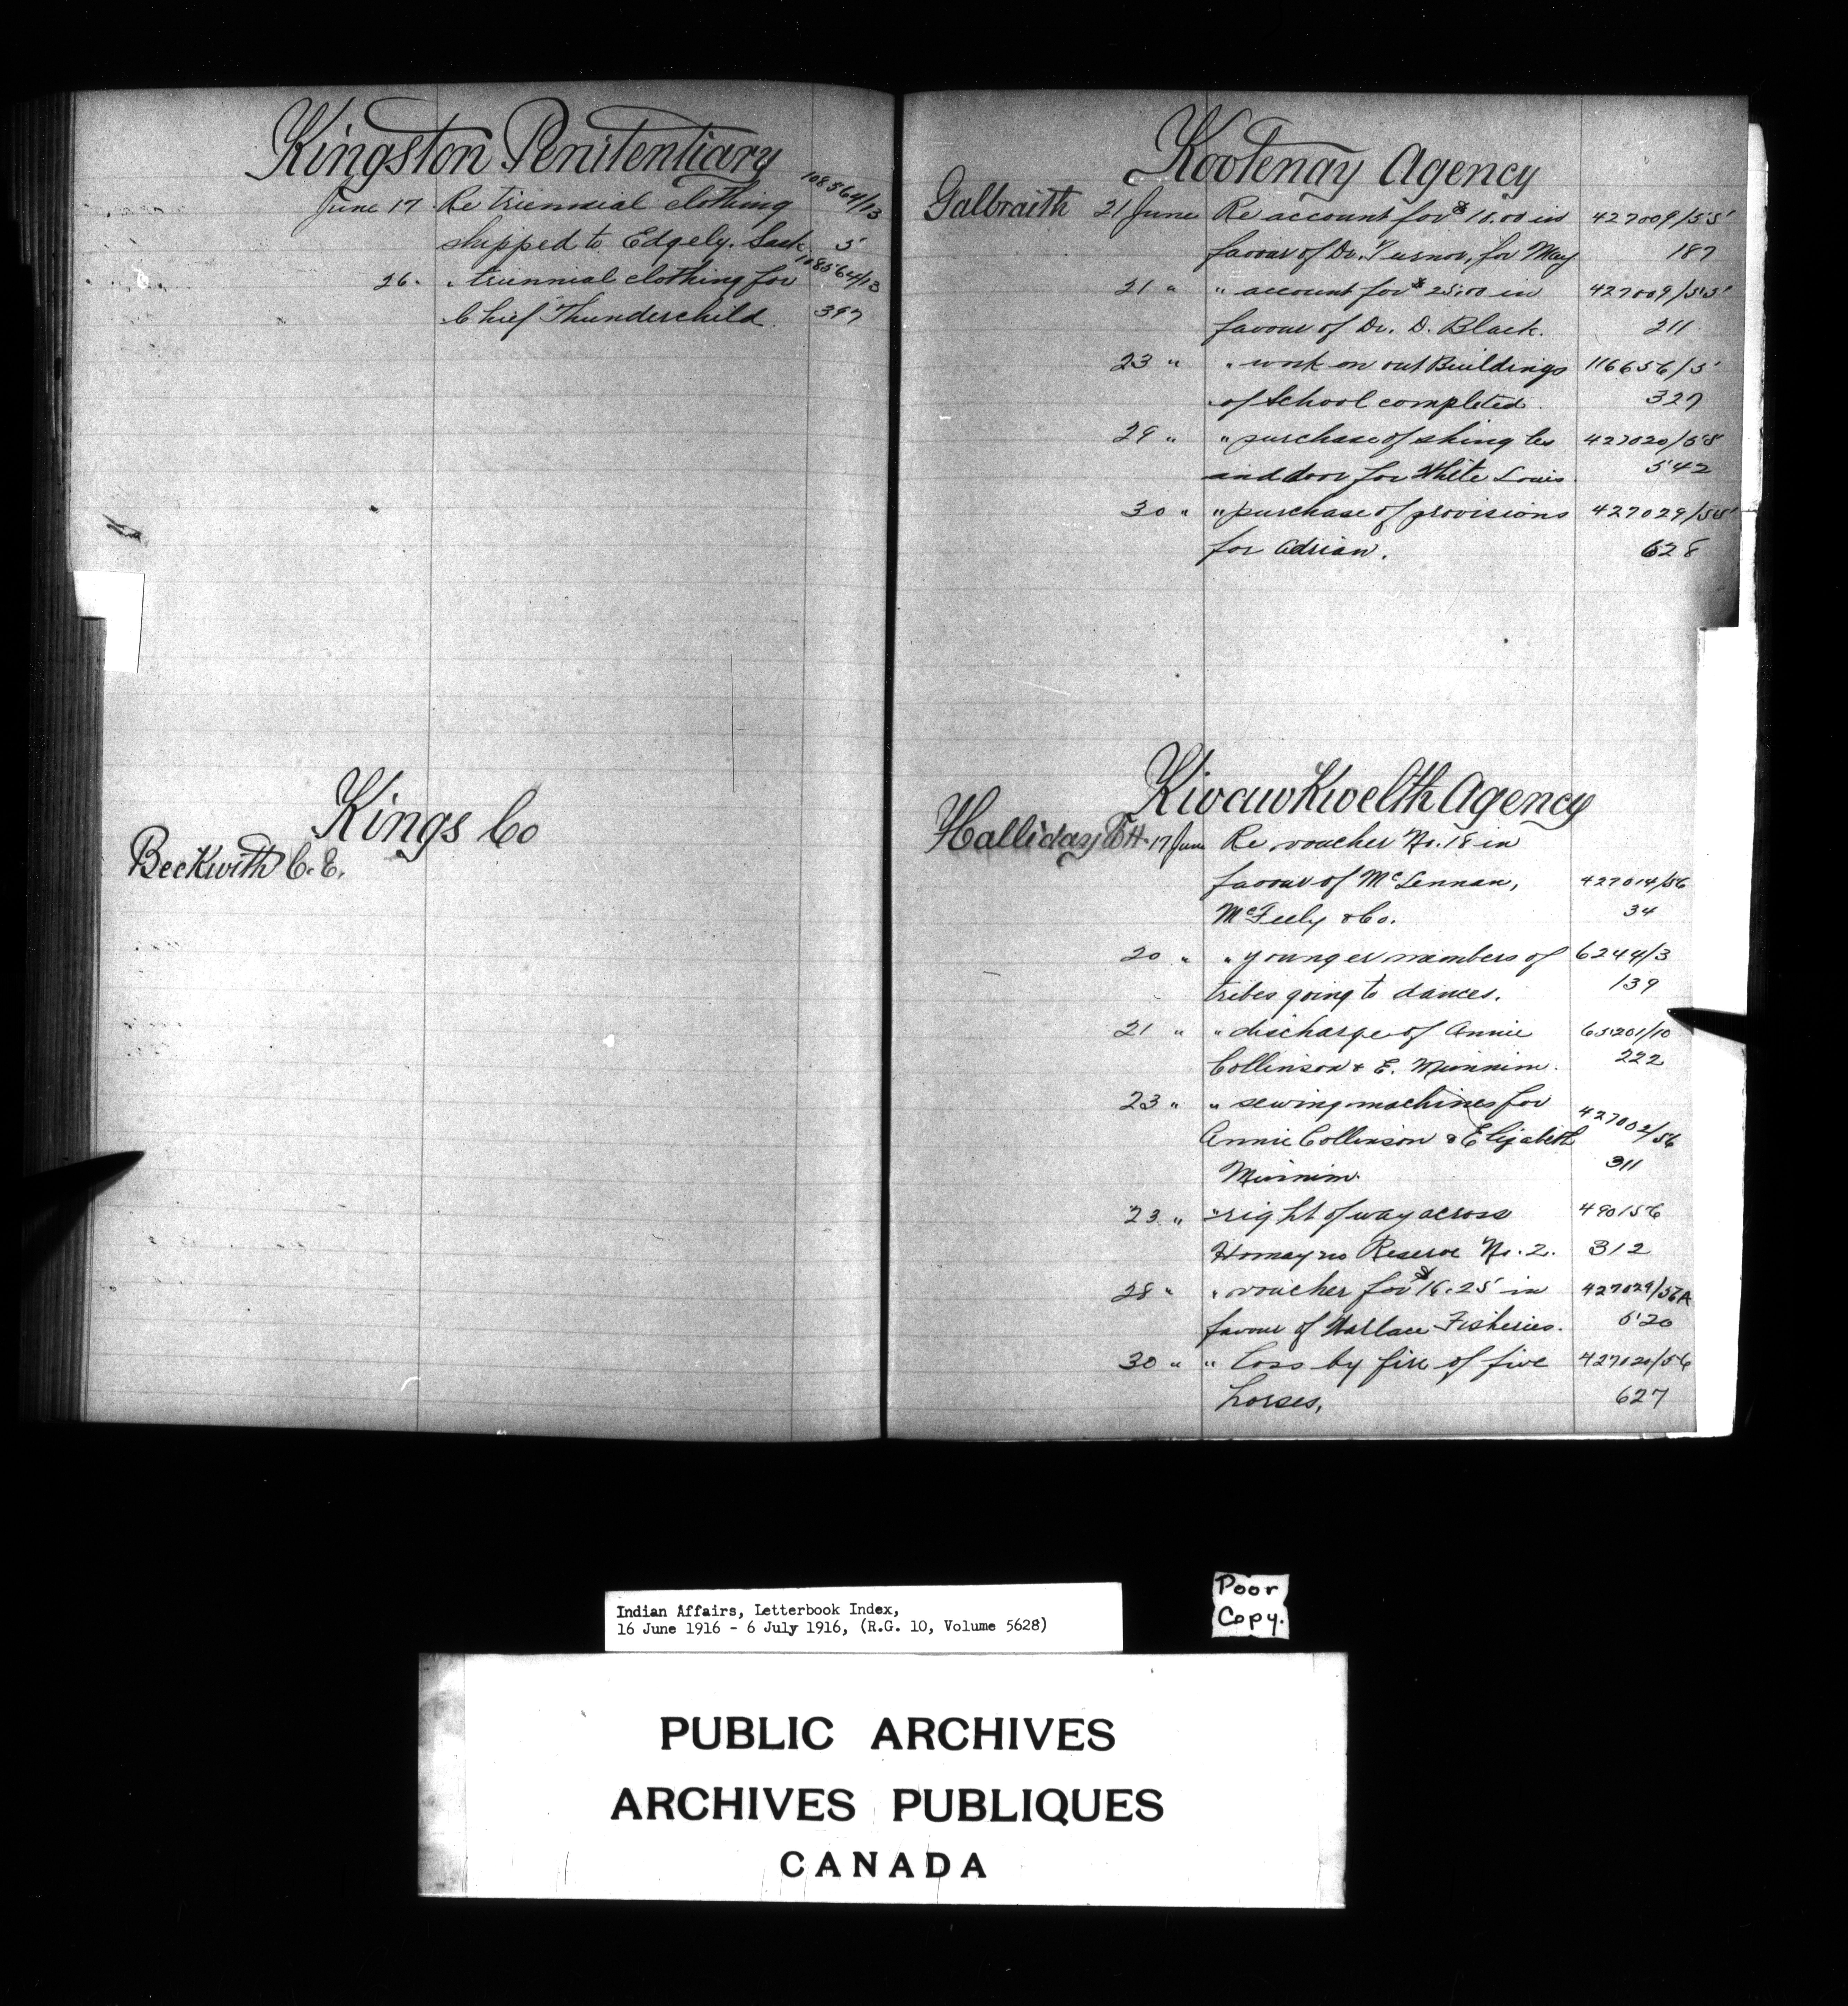 Kingston Penitentiary
June 17 Re triennial clothing 108564/13
shipped to Edgely. Sask. 5
26. " triennial clothing for 108564/13
Chief Thunderchild. 397
Kings Co
Beckwith C. E.
Kootenay Agency
Galbraith 21 June Re account for $10.00 in 427009/55
favour of Dr. Turnor, for May 187
21 " " account for $25.00 in 427009/55
favour of Dr. D. Black. 211
23 " " work on out Buildings 116656/5
of School completed. 327
29 " " purchase of shingles 427020/55
and door for White Louis. 542
30 " " purchase of provisions 427029/55
for Adrian. 628
Kwawkwelth Agency
Halliday 17 June Re voucher No. 18 in
favour of McLennan, 427014/56
McFeely & Co. 34
20 " " younger members of 6244/3
tribes going to dances. 139
21 " " discharge of Annie 65201/10
Collinson & E. Minnim. 222
23 " " sewing machines for
Annie Collinson & Elizabeth 427002/56
Minnim. 311
23 " " right of way across 490156
Homayno Reserve No. 2. 312
28 " " voucher for $16.25 in 427029/56A
favour of Wallace Fisheries. 520
30 " " loss by fire of five 427020/56
horses, 627
Indian Affairs, Letterbook Index,
16 June 1916 - 6 July 1916, (R.G. 10, Volume 5628)
Poor
Copy.
PUBLIC ARCHIVES
ARCHIVES PUBLIQUES
CANADA